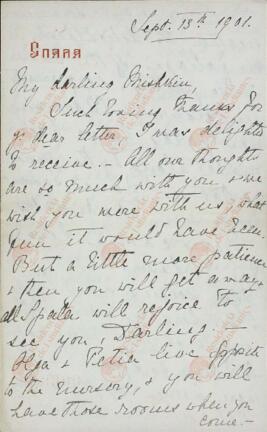 Sept. 13th 1901.
Спала
My darling Mishkin,
Such loving thanks for
yr dear letter, I was delighted
to receive. - All our thoughts
are so much with you & we
wish you were with us, what
fun it would have been.
But a little more patience
& then you will get away &
all Spala will rejoice to
see you, Darling. -
Olga & Petia live opposite
to the nursery, & you will
have those rooms when you
come. -